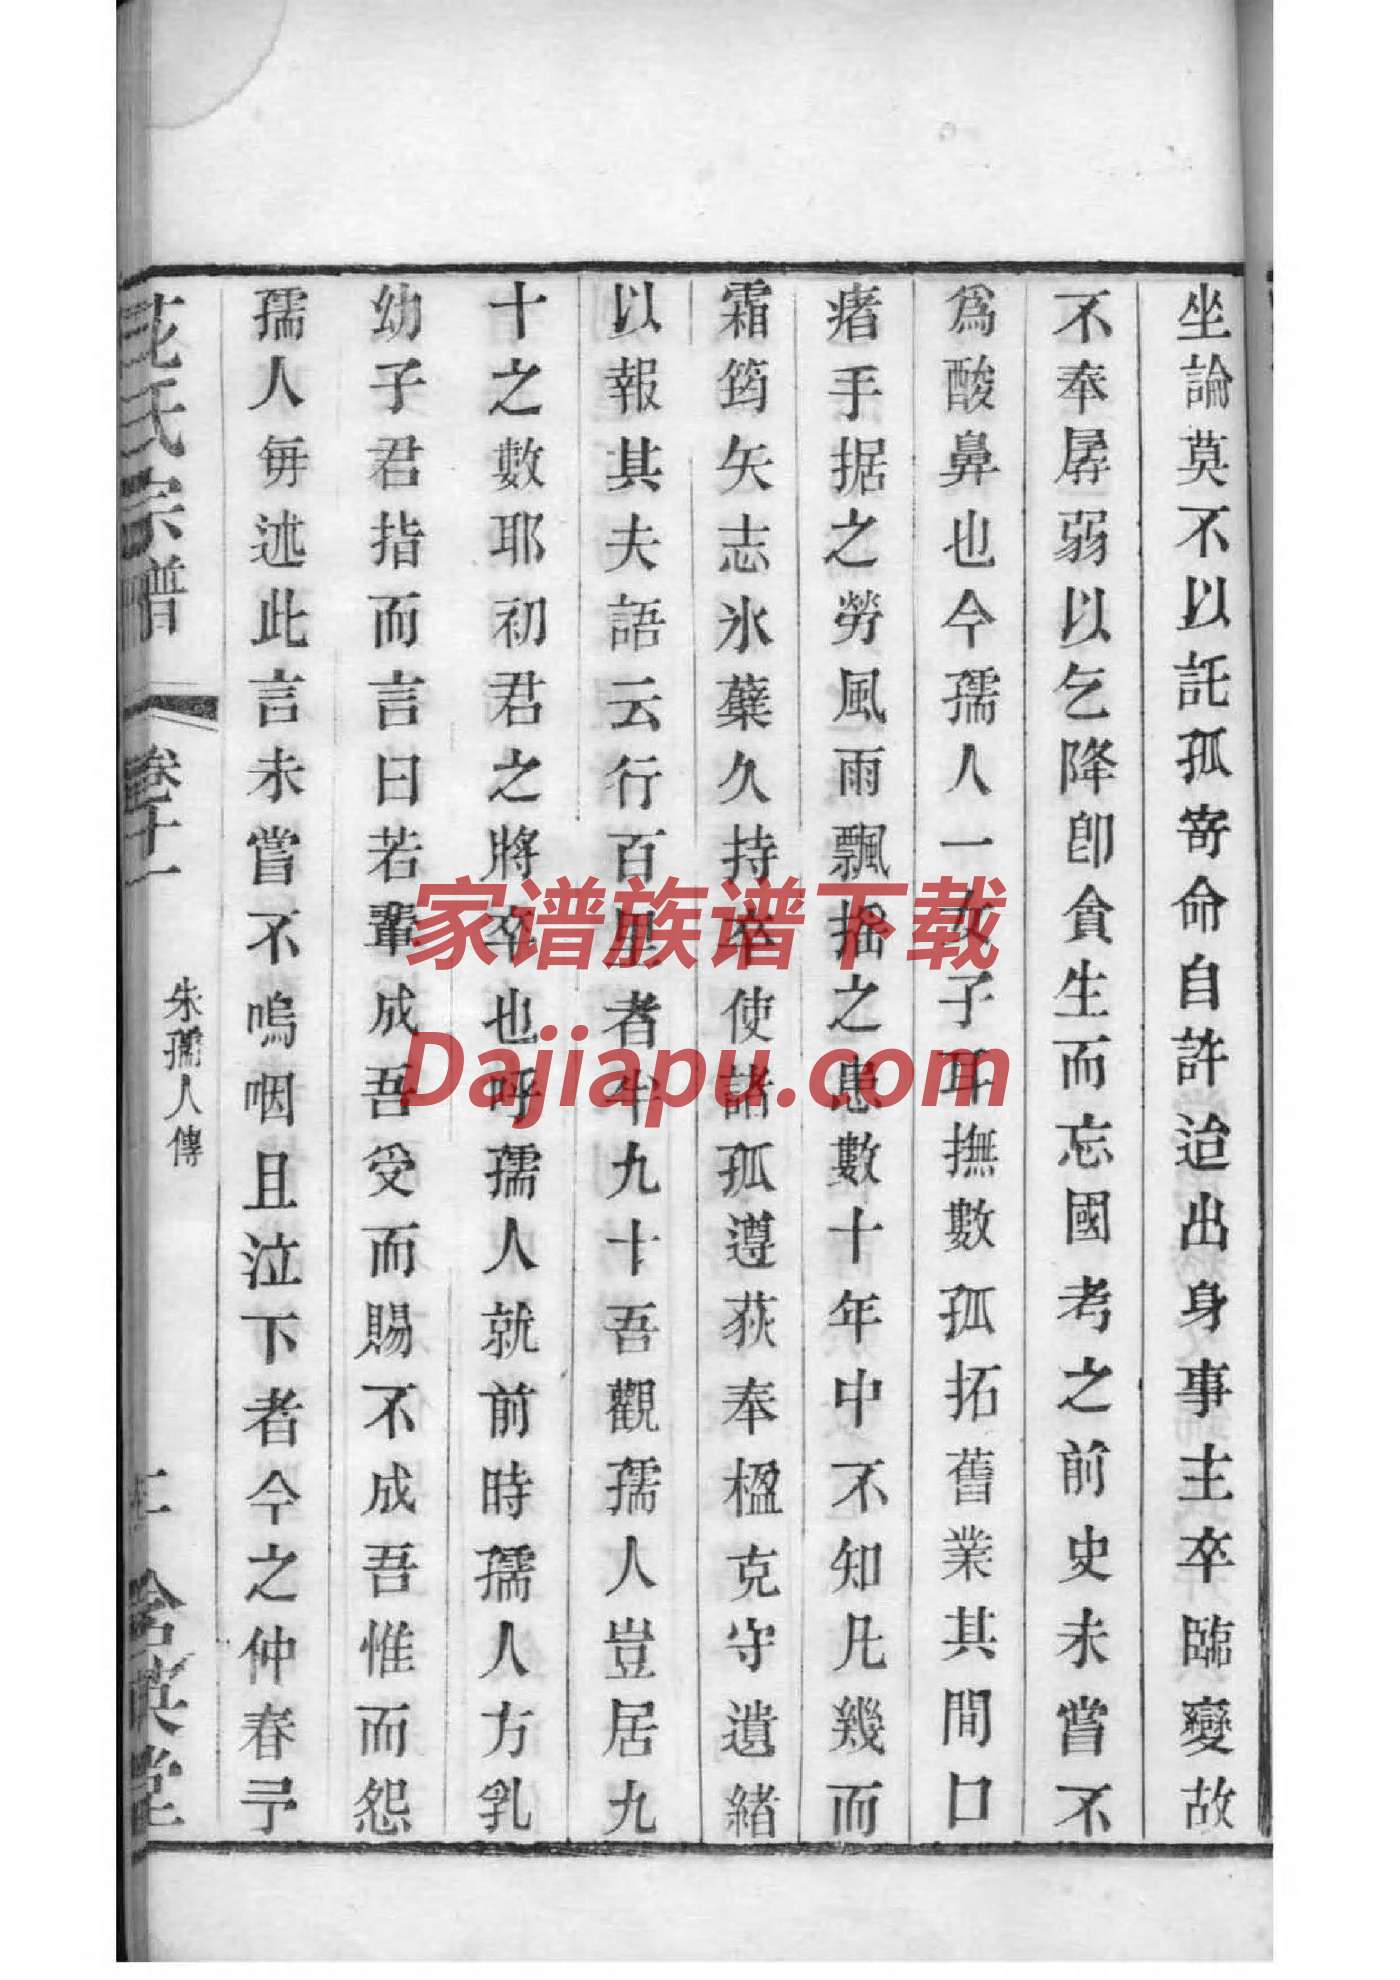 坐論莫不以託孤寄命自許迨出身事主卒臨變故
不奉孱弱以乞降卽貪生而忘國考之前史未嘗不
爲酸鼻也今孺人一女子耳撫數孤拓舊業其間口
瘏手据之勞風雨飄搖之患數十年中不知凡幾而
霜筠矢志氷蘗久持卒使諸孤遵荻奉楹克守遺緒
以報其夫語云行百里者半九十吾觀孺人豈居九
十之數耶初君之將卒也呼孺人就前時孺人方乳
幼子君指而言曰若輩成吾受而賜不成吾惟而怨
孺人每述此言未嘗不嗚咽且泣下者今之仲春予
氏宗譜
卷十一
朱孺人傳
堂
家谱族谱下载
Dajiapu.com